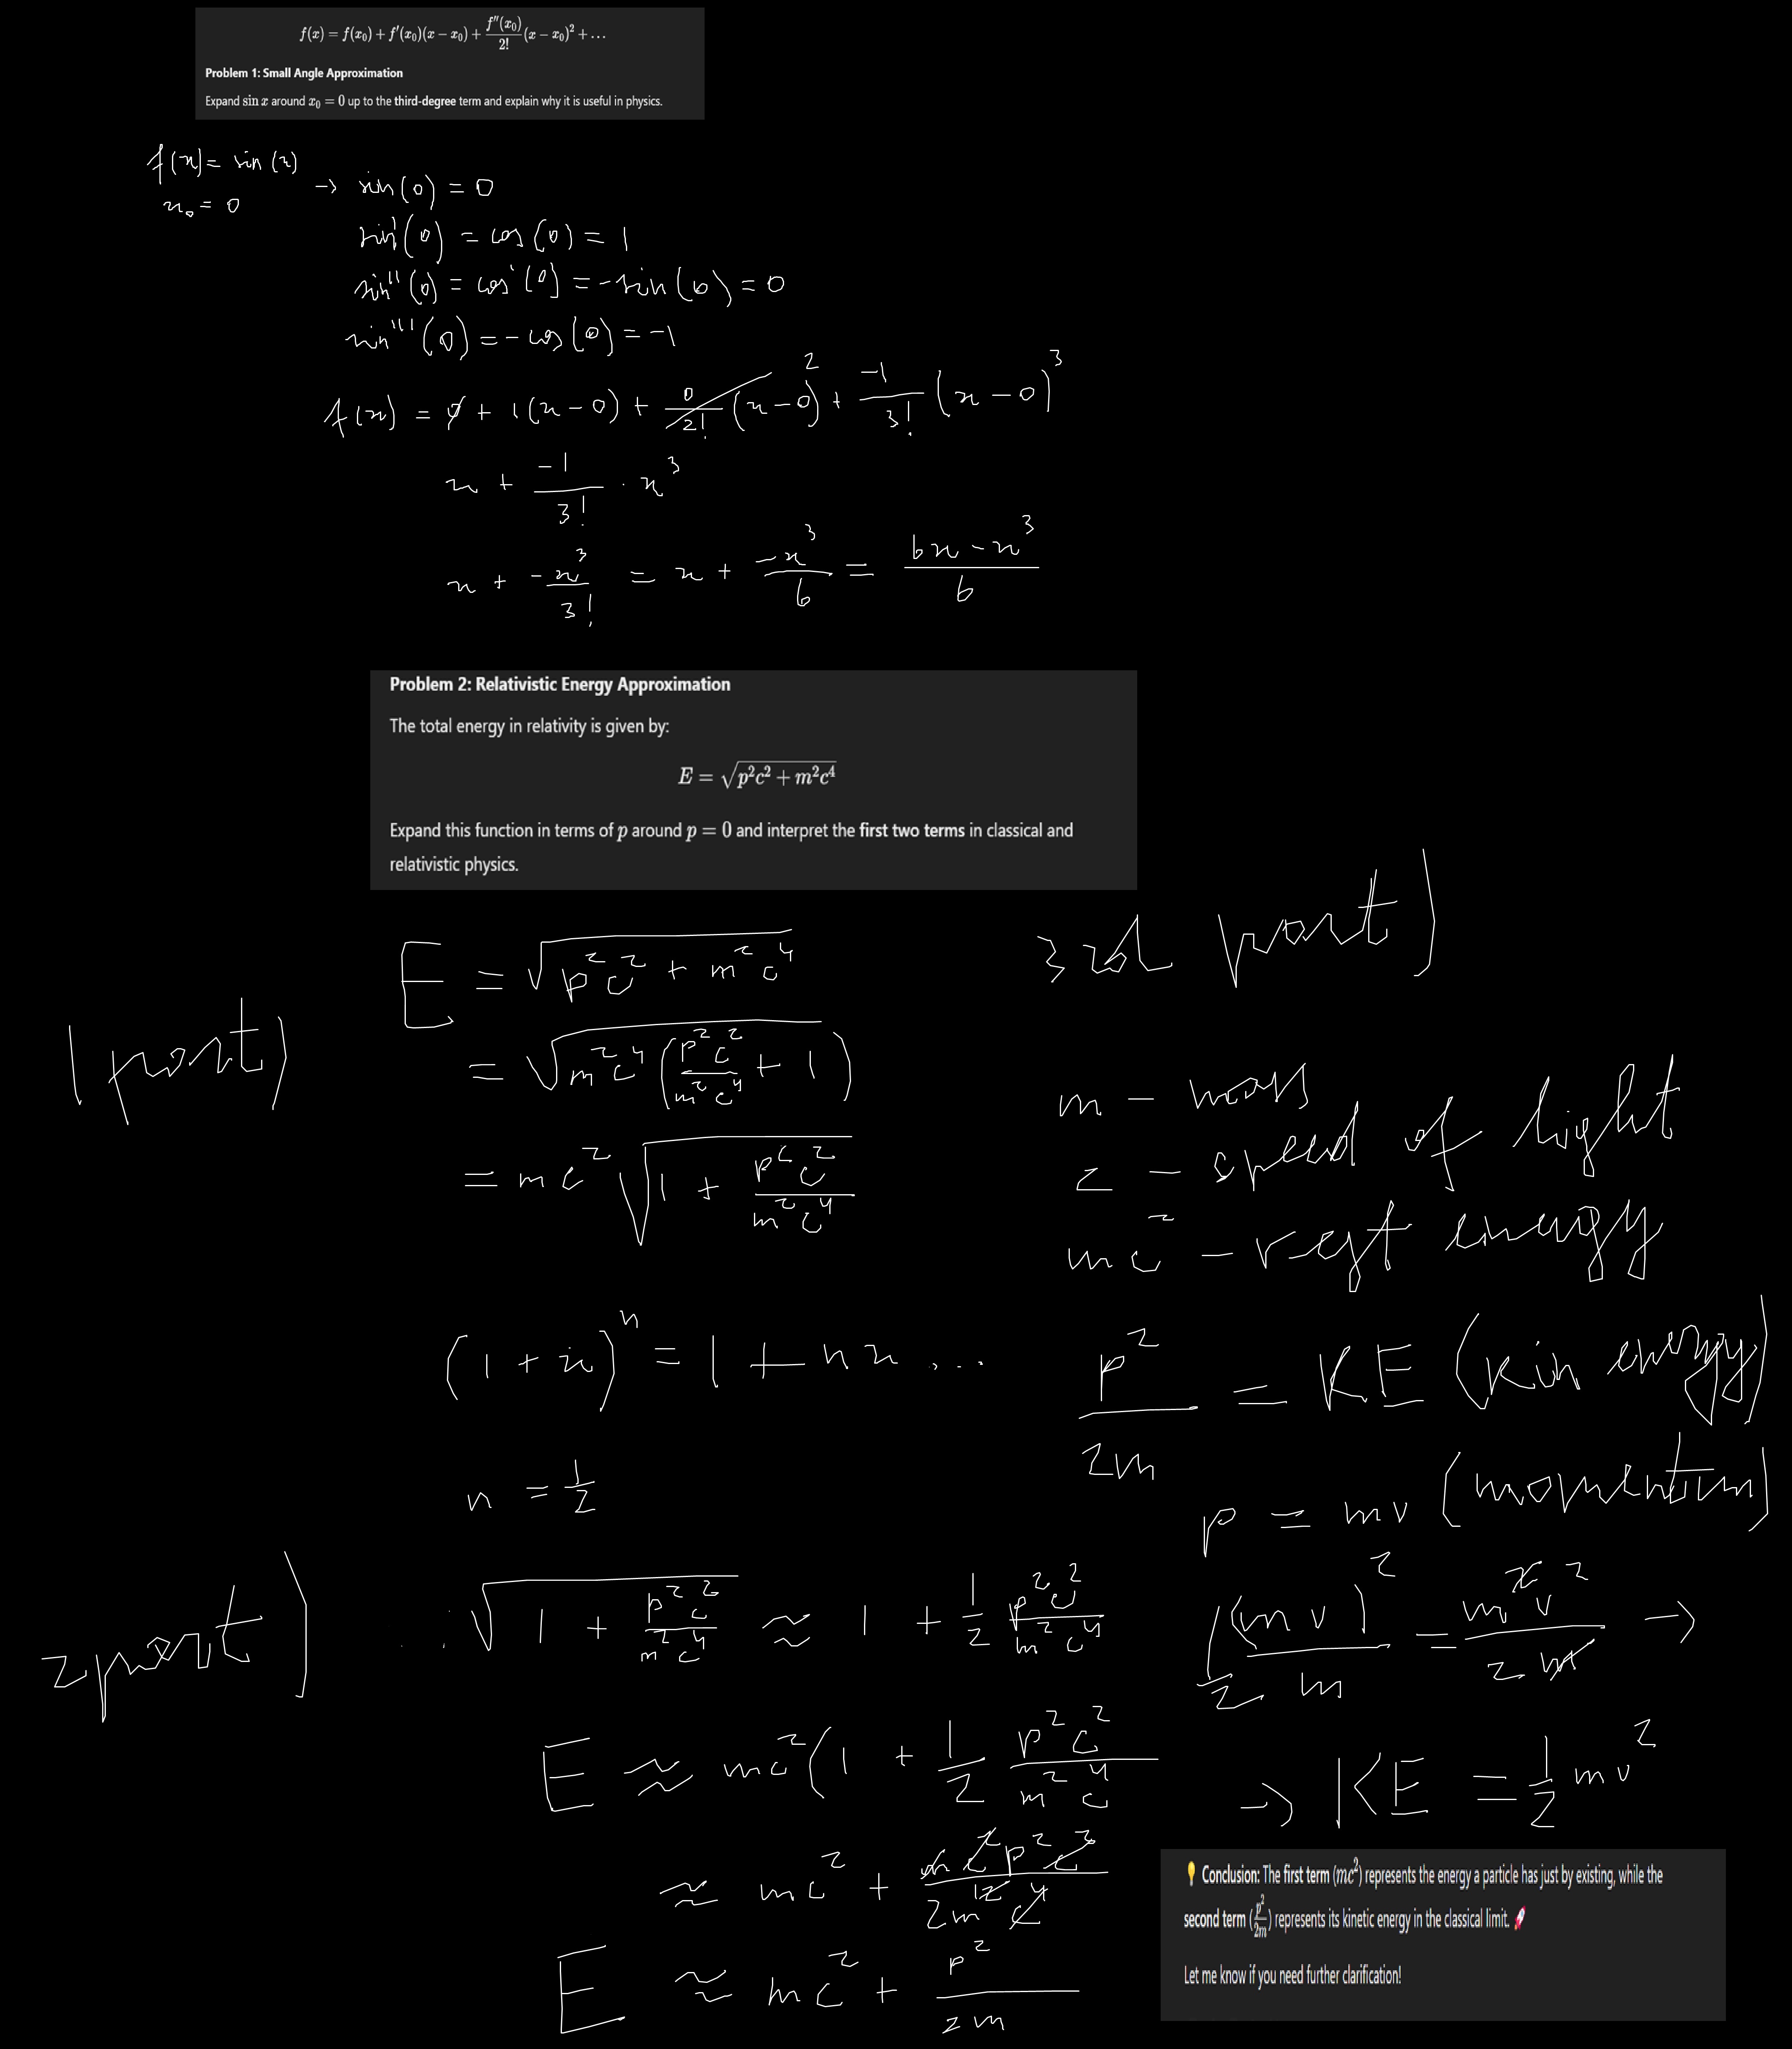 f(x) = f(x₀) + f′(x₀)(x − x₀) + f″(x₀)/2! (x − x₀)² + …
Problem 1: Small Angle Approximation
Expand sin x around x₀ = 0 up to the third-degree term and explain why it is useful in physics.
f(x) = sin(x)
x₀ = 0
→ sin(0) = 0
sin'(0) = cos(0) = 1
sin''(0) = cos'(0) = −sin(0) = 0
sin'''(0) = −cos(0) = −1
f(x) = 0 + 1(x − 0) + 0/2! (x − 0)² + −1/3! (x − 0)³
x + −1/3! · x³
x + −x³/3! = x + −x³/6 = 6x − x³/6
Problem 2: Relativistic Energy Approximation
The total energy in relativity is given by:
E = √(p²c² + m²c⁴)
Expand this function in terms of p around p = 0 and interpret the first two terms in classical and
relativistic physics.
1 part)
E = √(p²c² + m²c⁴)
= √(m²c⁴(p²c²/m²c⁴ + 1))
= mc² √(1 + p²c²/m²c⁴)
(1 + x)ⁿ = 1 + nx ...
n = 1/2
2 part)
√(1 + p²c²/m²c⁴) ≈ 1 + 1/2 p²c²/m²c⁴
E ≈ mc²(1 + 1/2 p²c²/m²c⁴
≈ mc² + mc²p²c²/2m²c⁴
E ≈ mc² + p²/2m
3rd part)
m – mass
c – speed of light
mc² – rest energy
p²/2m = KE (kin energy)
p = mv (momentum)
1/2 (mv)²/m = m²v²/2m →
→ KE = 1/2 mv²
💡 Conclusion: The first term (mc²) represents the energy a particle has just by existing, while the
second term (p²/2m) represents its kinetic energy in the classical limit. 🚀
Let me know if you need further clarification!